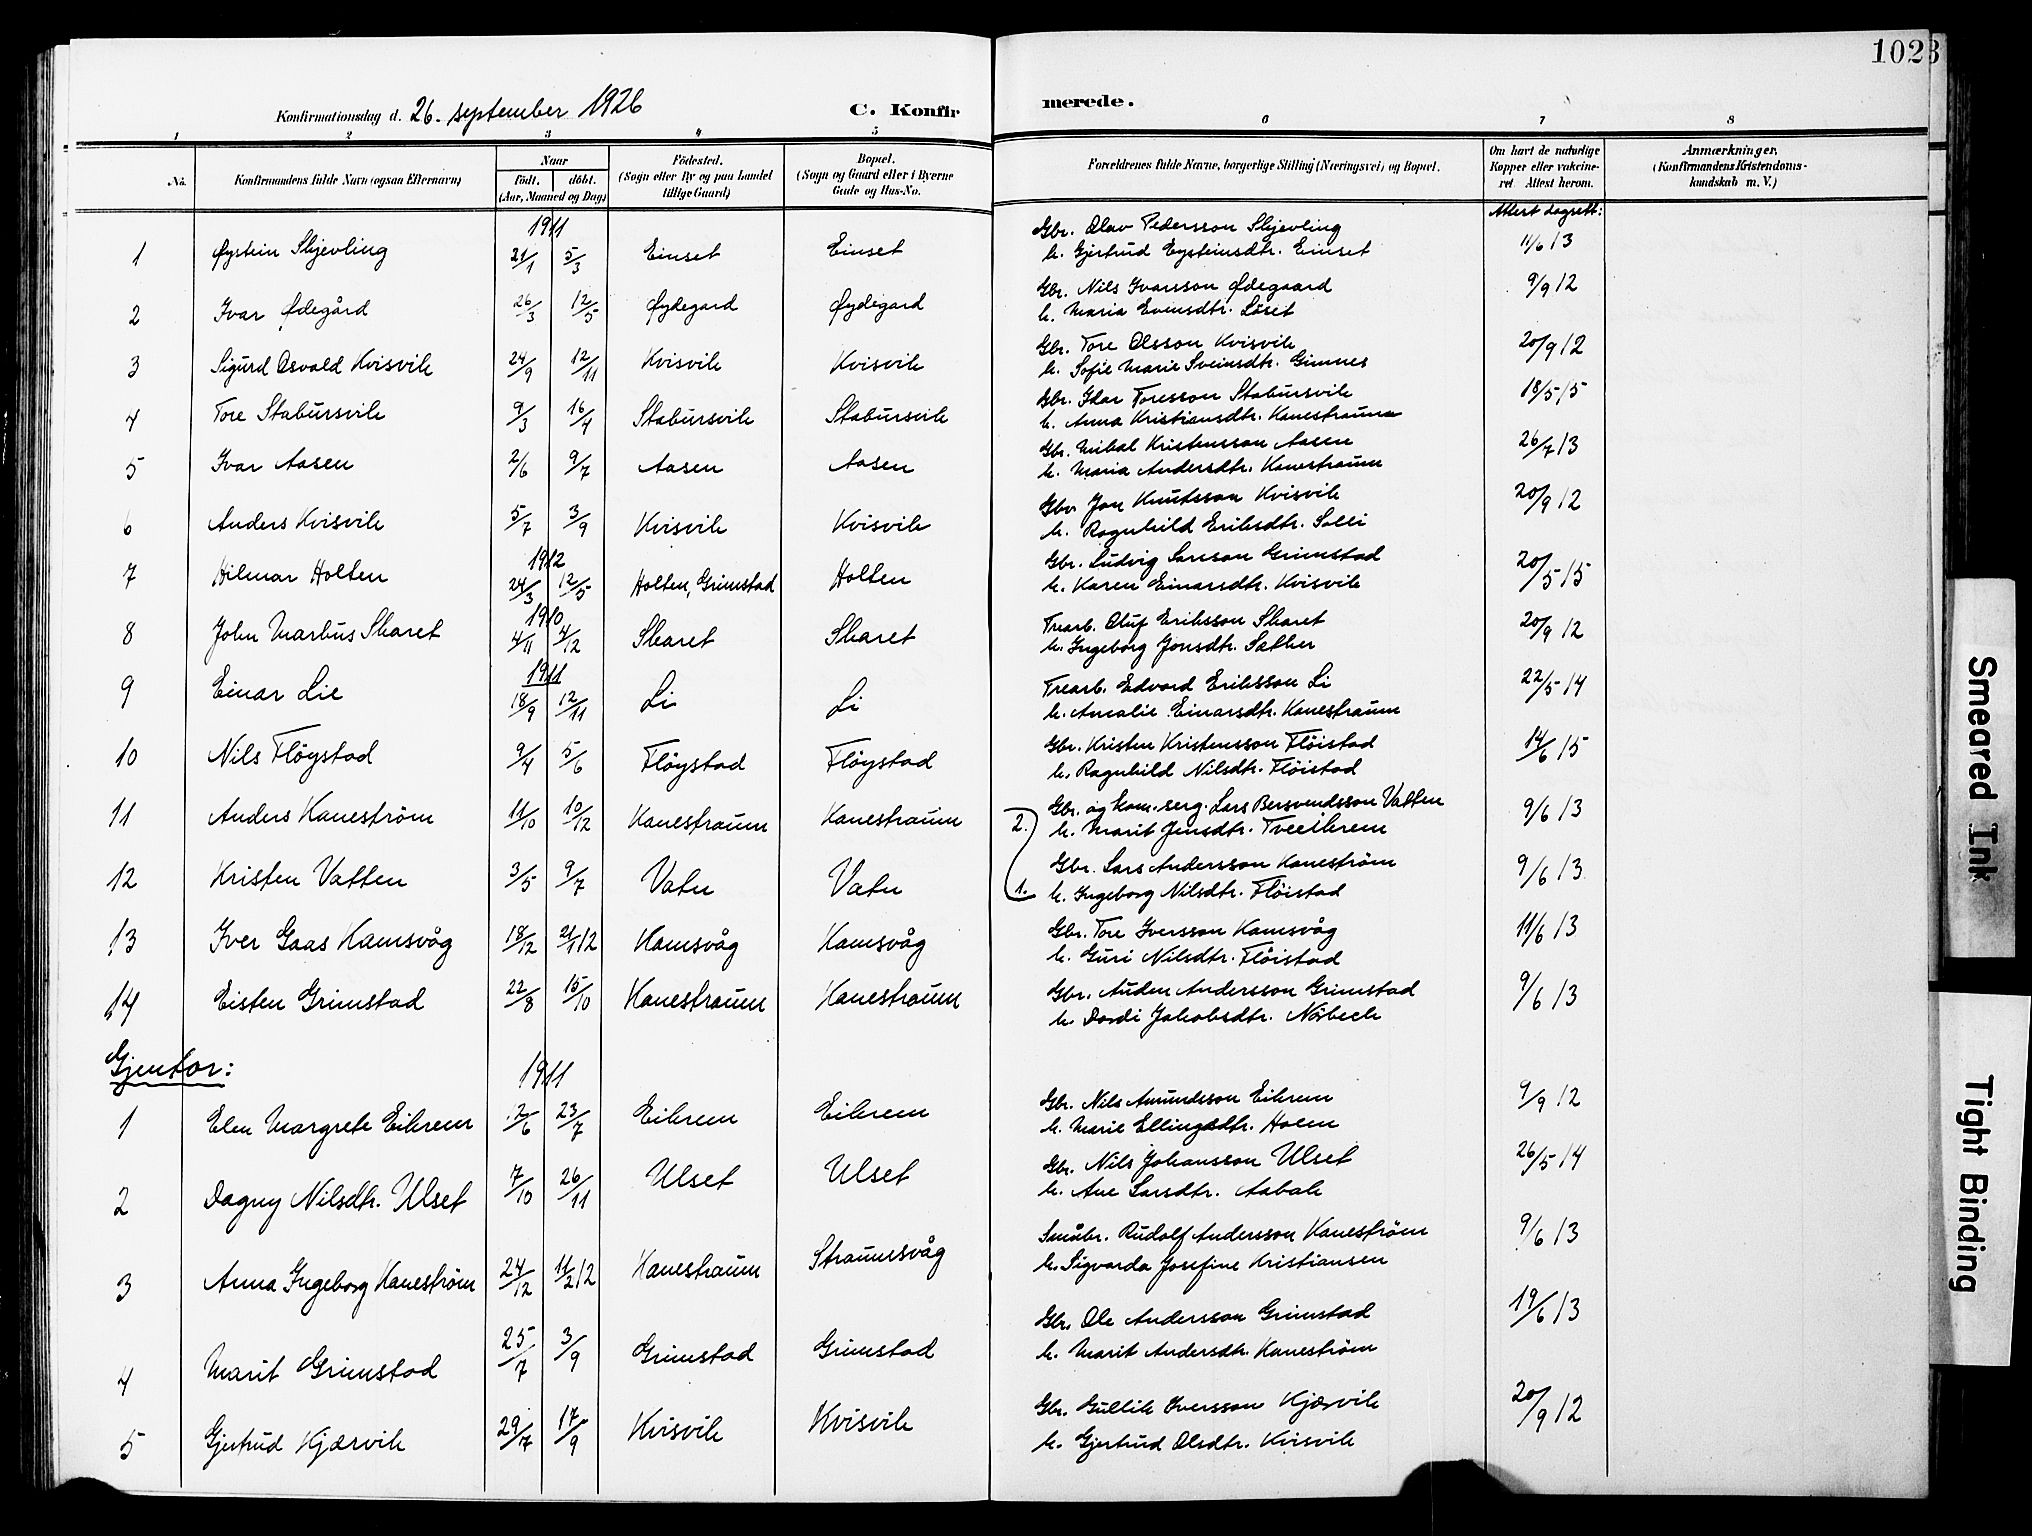 102
Konfirmationsdag d. 26. september 1926
C. Konfirmerede.
1 2 3 4 5 6 7 8
No. Konfirmandens fulde Navn (ogsaa Efternavn) Naar födt. döbt. (Aar, Maaned og Dag) Födested. (Sogn eller By og paa Landet tillige Gaard) Bopæl. (Sogn og Gaard eller i Byerne Gade og Hus-No. Forældrenes fulde Navne, borgerlige Stilling (Næringsvei) og Bopæl. Om havt de naturlige Kopper eller vakcineret. Attest herom. Anmærkninger. (Konfirmandens Kristendomskundskab m. V.)
1911 Attest dagsett:
1 Øystein Skjevling 21/1 5/3 Einset Einset Gbr. Olav Pedersson Skjevling 11/6 13
k. Gjertrud Eysteinsdtr. Einset
2 Ivar Ødegård 26/3 12/5 Øydegard Øydegard Gbr. Nils Ivarsson Ødegaard 9/9 12
k. Maria Evensdtr. Löset
3 Sigurd Osvald Kvisvik 24/9 12/11 Kvisvik Kvisvik Gbr. Tore Olsson Kvisvik 20/9 12
k. Sofie Marie Sveinsdtr. Gimnes
4 Tore Stabursvik 9/3 16/4 Stabursvik Stabursvik Gbr. Ivar Toresson Stabursvik 18/5 15
k. Anna Kristiansdtr. Kanestraum
5 Ivar Aasen 2/6 9/7 Aasen Aasen Gbr. Mikal Kristensson Aasen 26/7 13
k. Maria Andersdtr. Kanestraum
6 Anders Kvisvik 5/7 3/9 Kvisvik Kvisvik Gbr Jon Knutsson Kvisvik 20/9 12
k. Ragnhild Eriksdtr. Solli
1912
7 Hilmar Holten 24/3 12/5 Holten, Grimstad Holten Gbr. Ludvig Larsson Grimstad 20/5 15
k. Karen Einarsdtr. Kvisvik
1910
8 John Markus Skaret 4/11 4/12 Skaret Skaret Trearb. Oluf Eriksson Skaret 20/9 12
k. Ingeborg Jonsdtr. Sæther
1911
9 Einar Lie 18/9 12/11 Li Li Trearb. Edvard Eriksson Li 22/5 14
k. Amalie Einarsdtr. Kanestraum
10 Nils Flöystad 9/4 5/6 Flöystad Flöystad Gbr. Kristen Kristensson Flöistad 14/6 15
k. Ragnhild Nilsdtr. Flöistad
11 Anders Kaneström 11/10 10/12 Kanestraum Kanestraum 2. Gbr. og kom. serg. Lars Bersvendsson Vatten 9/6 13
k. Marit Jensdtr. Tveeikrem
12 Kristen Vatten 3/5 9/7 Vatn Vatn Gbr. Lars Andersson Kaneström 9/6 13
1. k. Ingeborg Nilsdtr. Flöistad
13 Iver Gaas Kamsvåg 18/12 21/1 12 Kamsvåg Kamsvåg Gbr. Tore Iversson Kamsvåg 11/6 13
k. Guri Nilsdtr. Flöistad
14 Eisten Grimstad 22/8 15/10 Kanestraum Kanestraum Gbr. Auden Andersson Grimstad 9/6 13
k. Dordi Jakobsdtr. Nörbech
Gjentor: 1911
1 Elen Margrete Eikrem 12/6 23/7 Eikrem Eikrem Gbr. Nils Amundsson Eikrem 9/9 12
k. Marie Ellingsdtr. Holm
2 Dagny Nilsdtr. Ulset 7/10 26/11 Ulset Ulset Gbr. Nils Johansson Ulset 26/5 14
k. Ane Larsdtr. Aabak
3 Anna Ingeborg Kaneström 24/12 11/2 12 Kanestraum Straumsvåg Småbr. Rudolf Andersson Kaneström 9/6 13
k. Sigvarda Josefine Kristiansen
4 Marit Grimstad 25/7 3/9 Grimstad Grimstad Gbr. Ole Andersson Grimstad 19/6 13
k. Marit Andersdtr. Kaneström
5 Gjertrud Kjærvik 29/7 17/9 Kvisvik Kvisvik Gbr. Gullik Iversson Kjærvik 20/9 12
k. Gjertrud Olsdtr. Kvisvik
Smeared Ink
Tight Binding